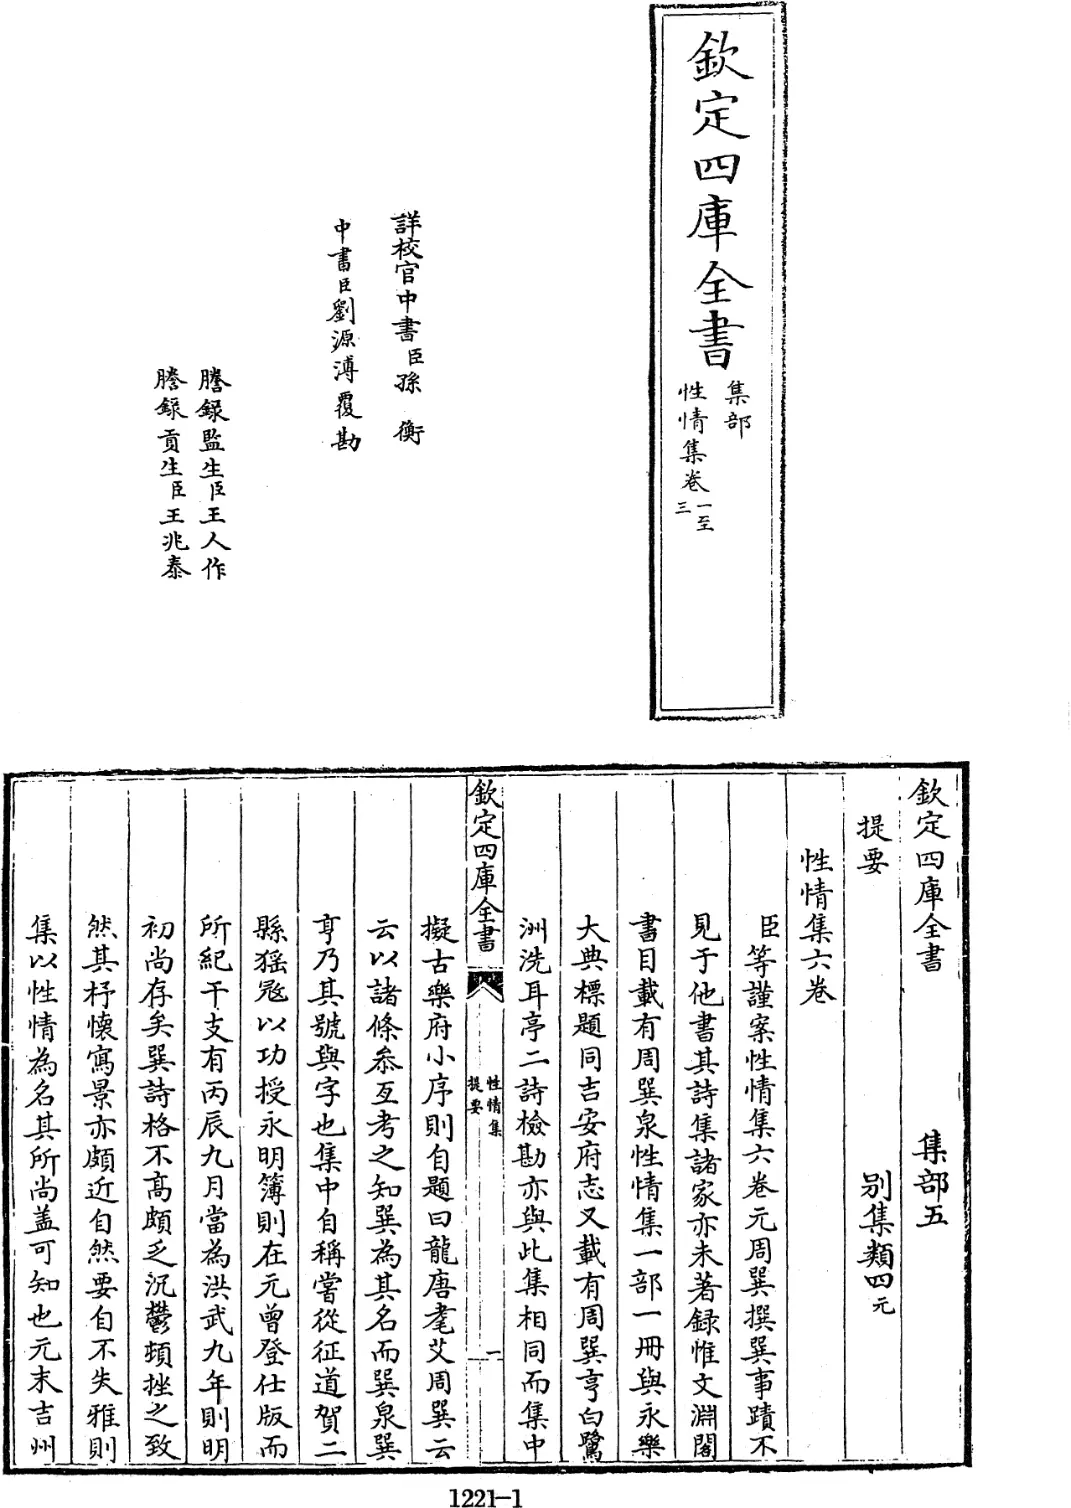 欽定四庫全書
集部
性情集卷一至三
詳校官中書臣孫衡
中書臣劉源溥覆勘
謄錄監生臣王人作
謄錄貢生臣王兆泰
欽定四庫全書 集部五
提要 别集類四元
性情集六卷
臣等謹案性情集六卷元周巽撰巽事蹟不
見于他書其詩集諸家亦未著録惟文淵閣
書目載有周巽泉性情集一部一冊與永樂
大典標題同吉安府志又載有周巽亨白鷺
洲洗耳亭二詩檢勘亦與此集相同而集中
欽定四庫全書
性情集
提要
一
擬古樂府小序則自題曰龍唐耄艾周巽云
云以諸條叅互考之知巽為其名而巽泉巽
亨乃其號與字也集中自稱嘗從征道賀二
縣猺冦以功授永明簿則在元曾登仕版而
所紀干支有丙辰九月當為洪武九年則明
初尚存矣巽詩格不高頗乏沉鬱頓挫之致
然其抒懷寫景亦頗近自然要自不失雅則
集以性情為名其所尚盖可知也元末吉州
1221-1